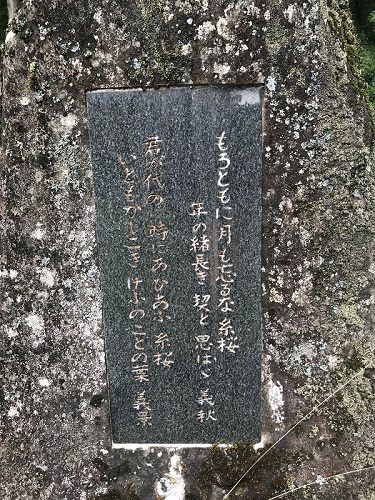 もろともに月も忘るな糸桜
年の緒長き 契と思はゝ 義秋
君が代の 時にあひあふ 糸桜
いともかしこき けふのことの葉 義景